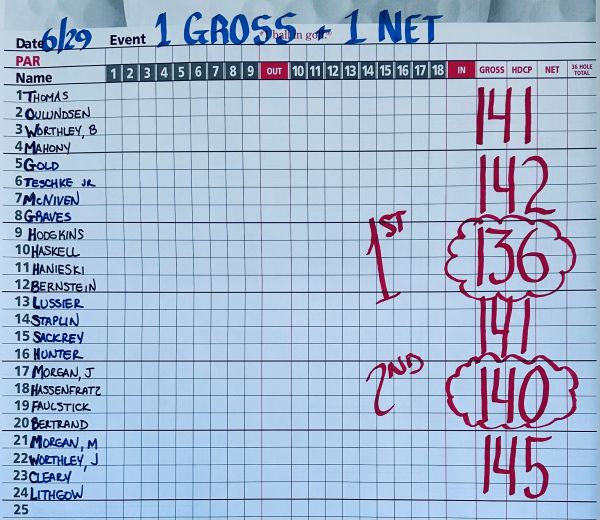 Date 6/29 Event 1 GROSS + 1 NET
PAR
Name 1 2 3 4 5 6 7 8 9 OUT 10 11 12 13 14 15 16 17 18 IN GROSS HDCP NET 36 HOLE TOTAL
1 THOMAS
2 OULUNDSEN
3 WORTHLEY, B
4 MAHONY
141
5 GOLD
6 TESCHKE JR
7 MCNIVEN
8 GRAVES
142
9 HODGKINS
10 HASKELL
11 HANIESKI
12 BERNSTEIN
1ST 136
13 LUSSIER
14 STAPLIN
15 SACKREY
16 HUNTER
141
17 MORGAN, J
18 HASSENFRATZ
19 FAULSTICK
20 BERTRAND
2ND 140
21 MORGAN, M
22 WORTHLEY, J
23 CLEARY
24 LITHGOW
145
25